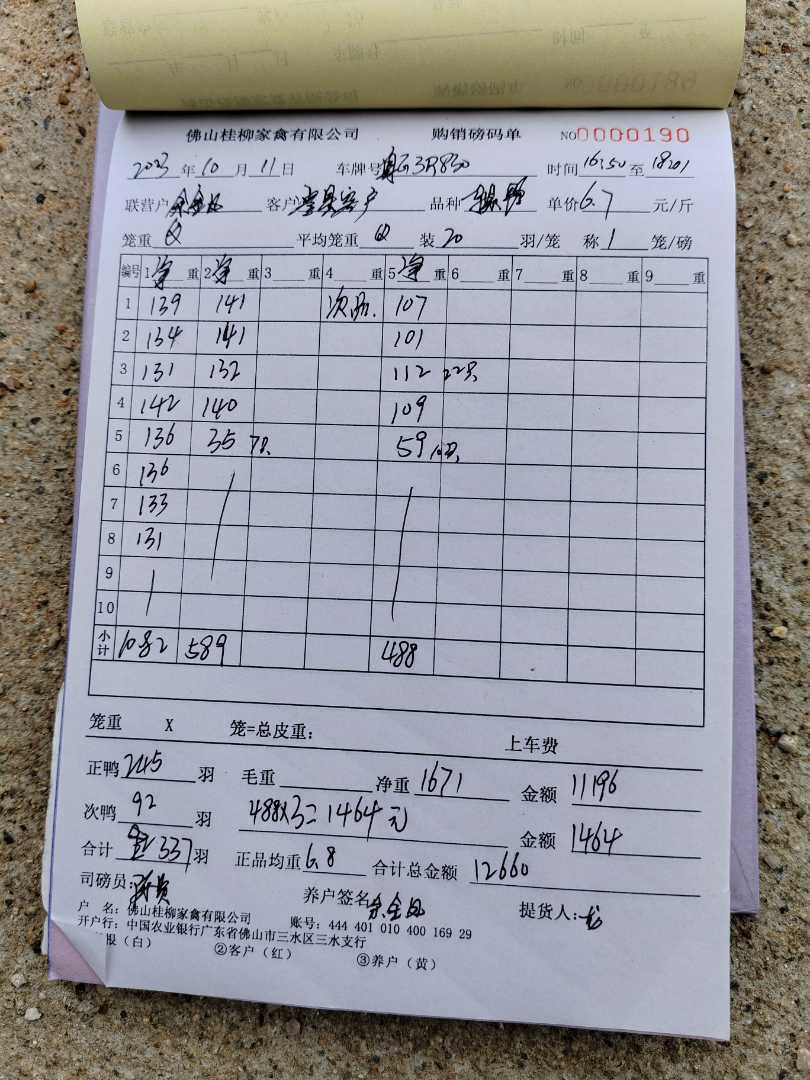 佛山桂柳家禽有限公司 购销磅码单 NO 0000190
2023 年 10 月 11 日 车牌号 3R830 时间 16:50 至 18:01
联营户 客户 品种 单价 6.7 元/斤
笼重 平均笼重 装 20 羽/笼 称 1 笼/磅
编号 1 净 重 2 净 重 3 重 4 重 5 净 重 6 重 7 重 8 重 9 重
1 139 141 次 107
2 134 141 101
3 131 132 112 22只
4 142 140 109
5 136 35 7只 59
6 136
7 133
8 131
9
10
小计 1082 589 488
笼重 X 笼=总皮重: 上车费
正鸭 245 羽 毛重 净重 1671 金额 11196
次鸭 92 羽 488x3=1464元 金额 1464
合计 337 羽 正品均重 6.8 合计总金额 12660
司磅员: 养户签名 余金 提货人:
户 名: 佛山桂柳家禽有限公司 账号: 444 401 010 400 169 29
开户行: 中国农业银行广东省佛山市三水区三水支行
根（白） ②客户（红） ③养户（黄）